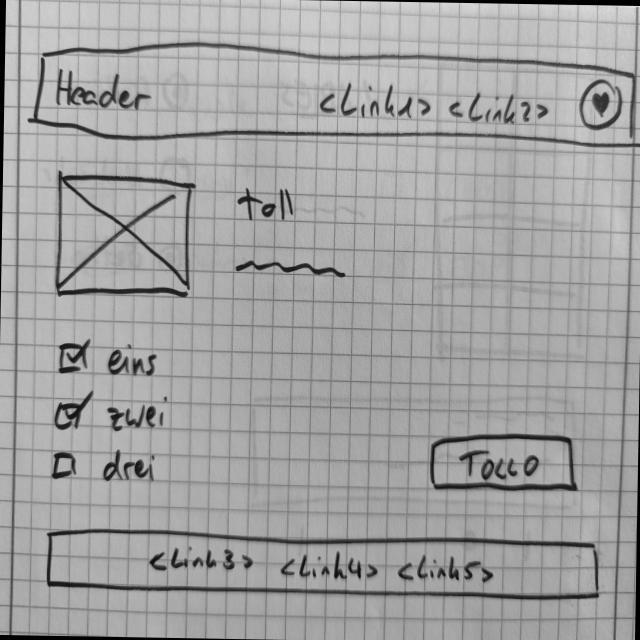 Header <Link1> <Link2>
toll
eins
zwei
drei
TOLLO
<Link3> <Link4> <Link5>